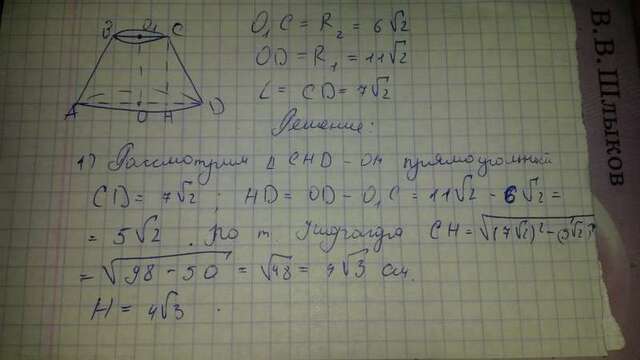 B O₁ C
A O H D
O₁C = R₂ = 6√2
OD = R₁ = 11√2
L = CD = 7√2
Решение:
1) Рассмотрим Δ CHD - он прямоугольный
CD = 7√2 ; HD = OD - O₁C = 11√2 - 6√2 =
= 5√2 . По т. Пифагора CH = √((7√2)² - (5√2)²
= √(98 - 50) = √48 = 4√3 см.
H = 4√3 .
В.В.Шлыков